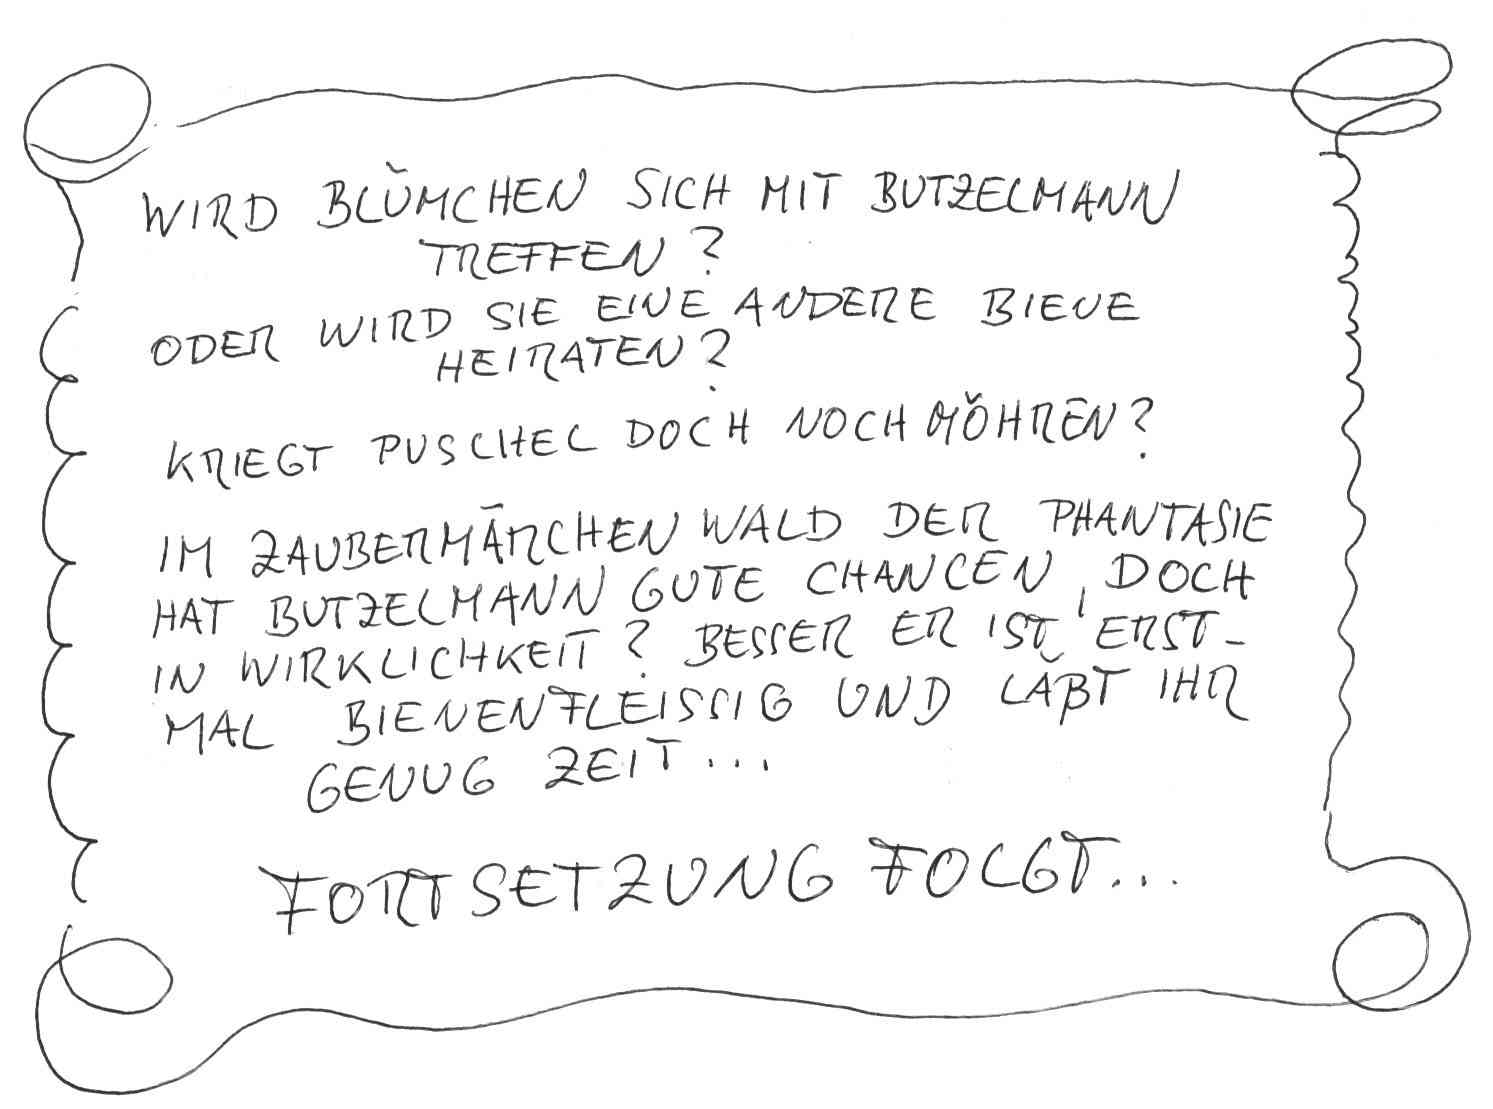 WIRD BLÜMCHEN SICH MIT BUTZELMANN
TREFFEN?
ODER WIRD SIE EINE ANDERE BIENE
HEIRATEN?
KRIEGT PUSCHEL DOCH NOCH MÖHREN?
IM ZAUBERMÄRCHEN WALD DER PHANTASIE
HAT BUTZELMANN GUTE CHANCEN, DOCH
IN WIRKLICHKEIT? BESSER ER IST ERST-
MAL BIENENFLEISSIG UND LÄßT IHR
GENUG ZEIT...
FORTSETZUNG FOLGT...